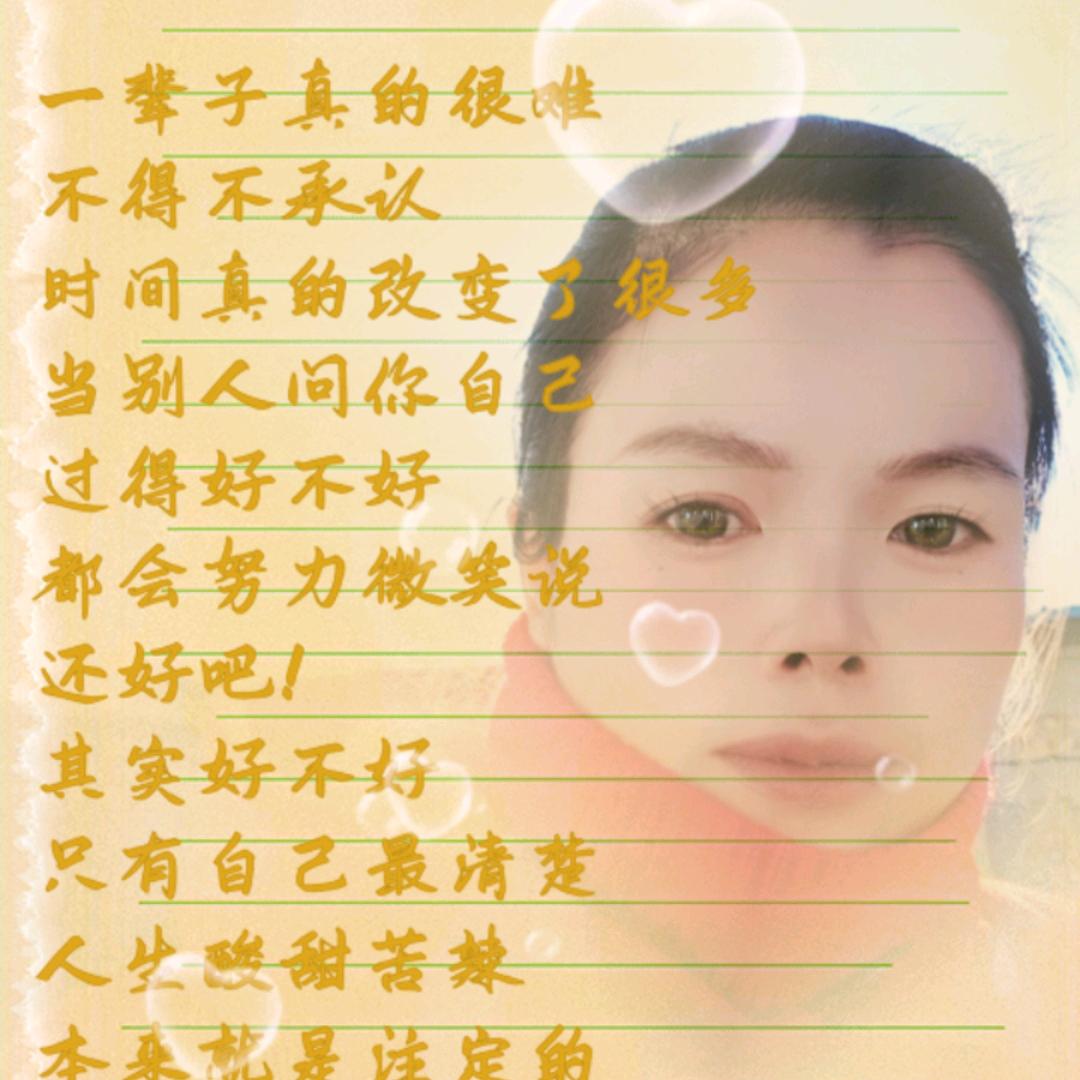 一辈子真的很难
不得不承认
时间真的改变了很多
当别人问你自己
过得好不好
都会努力微笑说
还好吧！
其实好不好
只有自己最清楚
人生酸甜苦辣
本来就是注定的